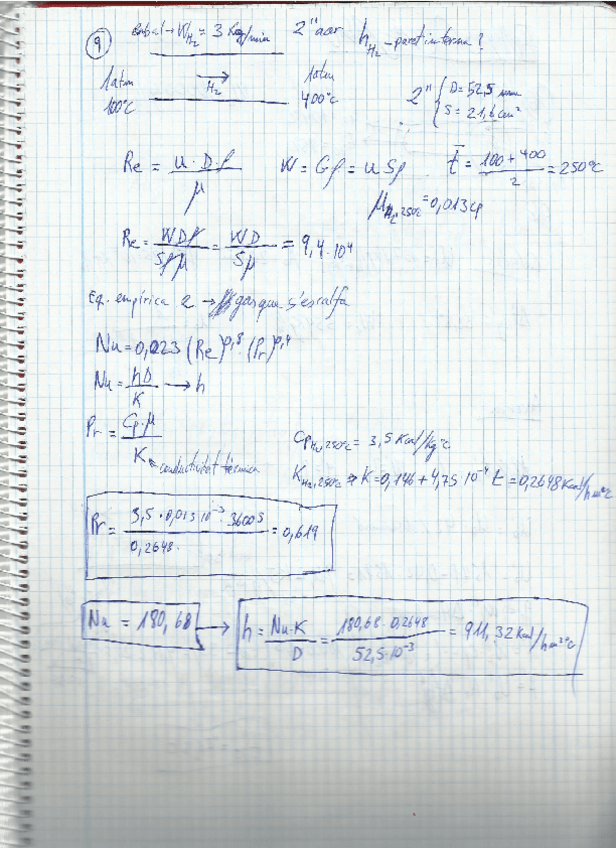 9 cabal → W_H₂ = 3 kg/min 2" acer h_H₂ - paret interna ?
1 atm → 1 atm
100°C H₂ 400°C
2" { D = 52,5 mm
S = 21,6 cm²
Re = u · D · ρ / μ W = Gρ = u Sρ t̄ = 100 + 400 / 2 = 250°C
μ_H₂,250°C = 0,013 cp
Re = WDρ / Sρμ = WD / Sμ = 9,4 · 10⁴
Eq. empírica 2 → gas que s'escalfa
Nu = 0,023 (Re)^0,8 · (Pr)^0,4
Nu = hD / K → h
Pr = Cp · μ / K ← conductivitat tèrmica
Cp_H₂,250°C = 3,5 Kcal/kg°C
K_H₂,250°C → K = 0,146 + 4,75 10⁻⁴ t = 0,2648 Kcal/hm°C
Pr = 3,5 · 0,013 10⁻³ · 3600 s / 0,2648 = 0,619
Nu = 180,68 → h = Nu · K / D = 180,68 · 0,2648 / 52,5 · 10⁻³ = 911,32 Kcal/hm²°C